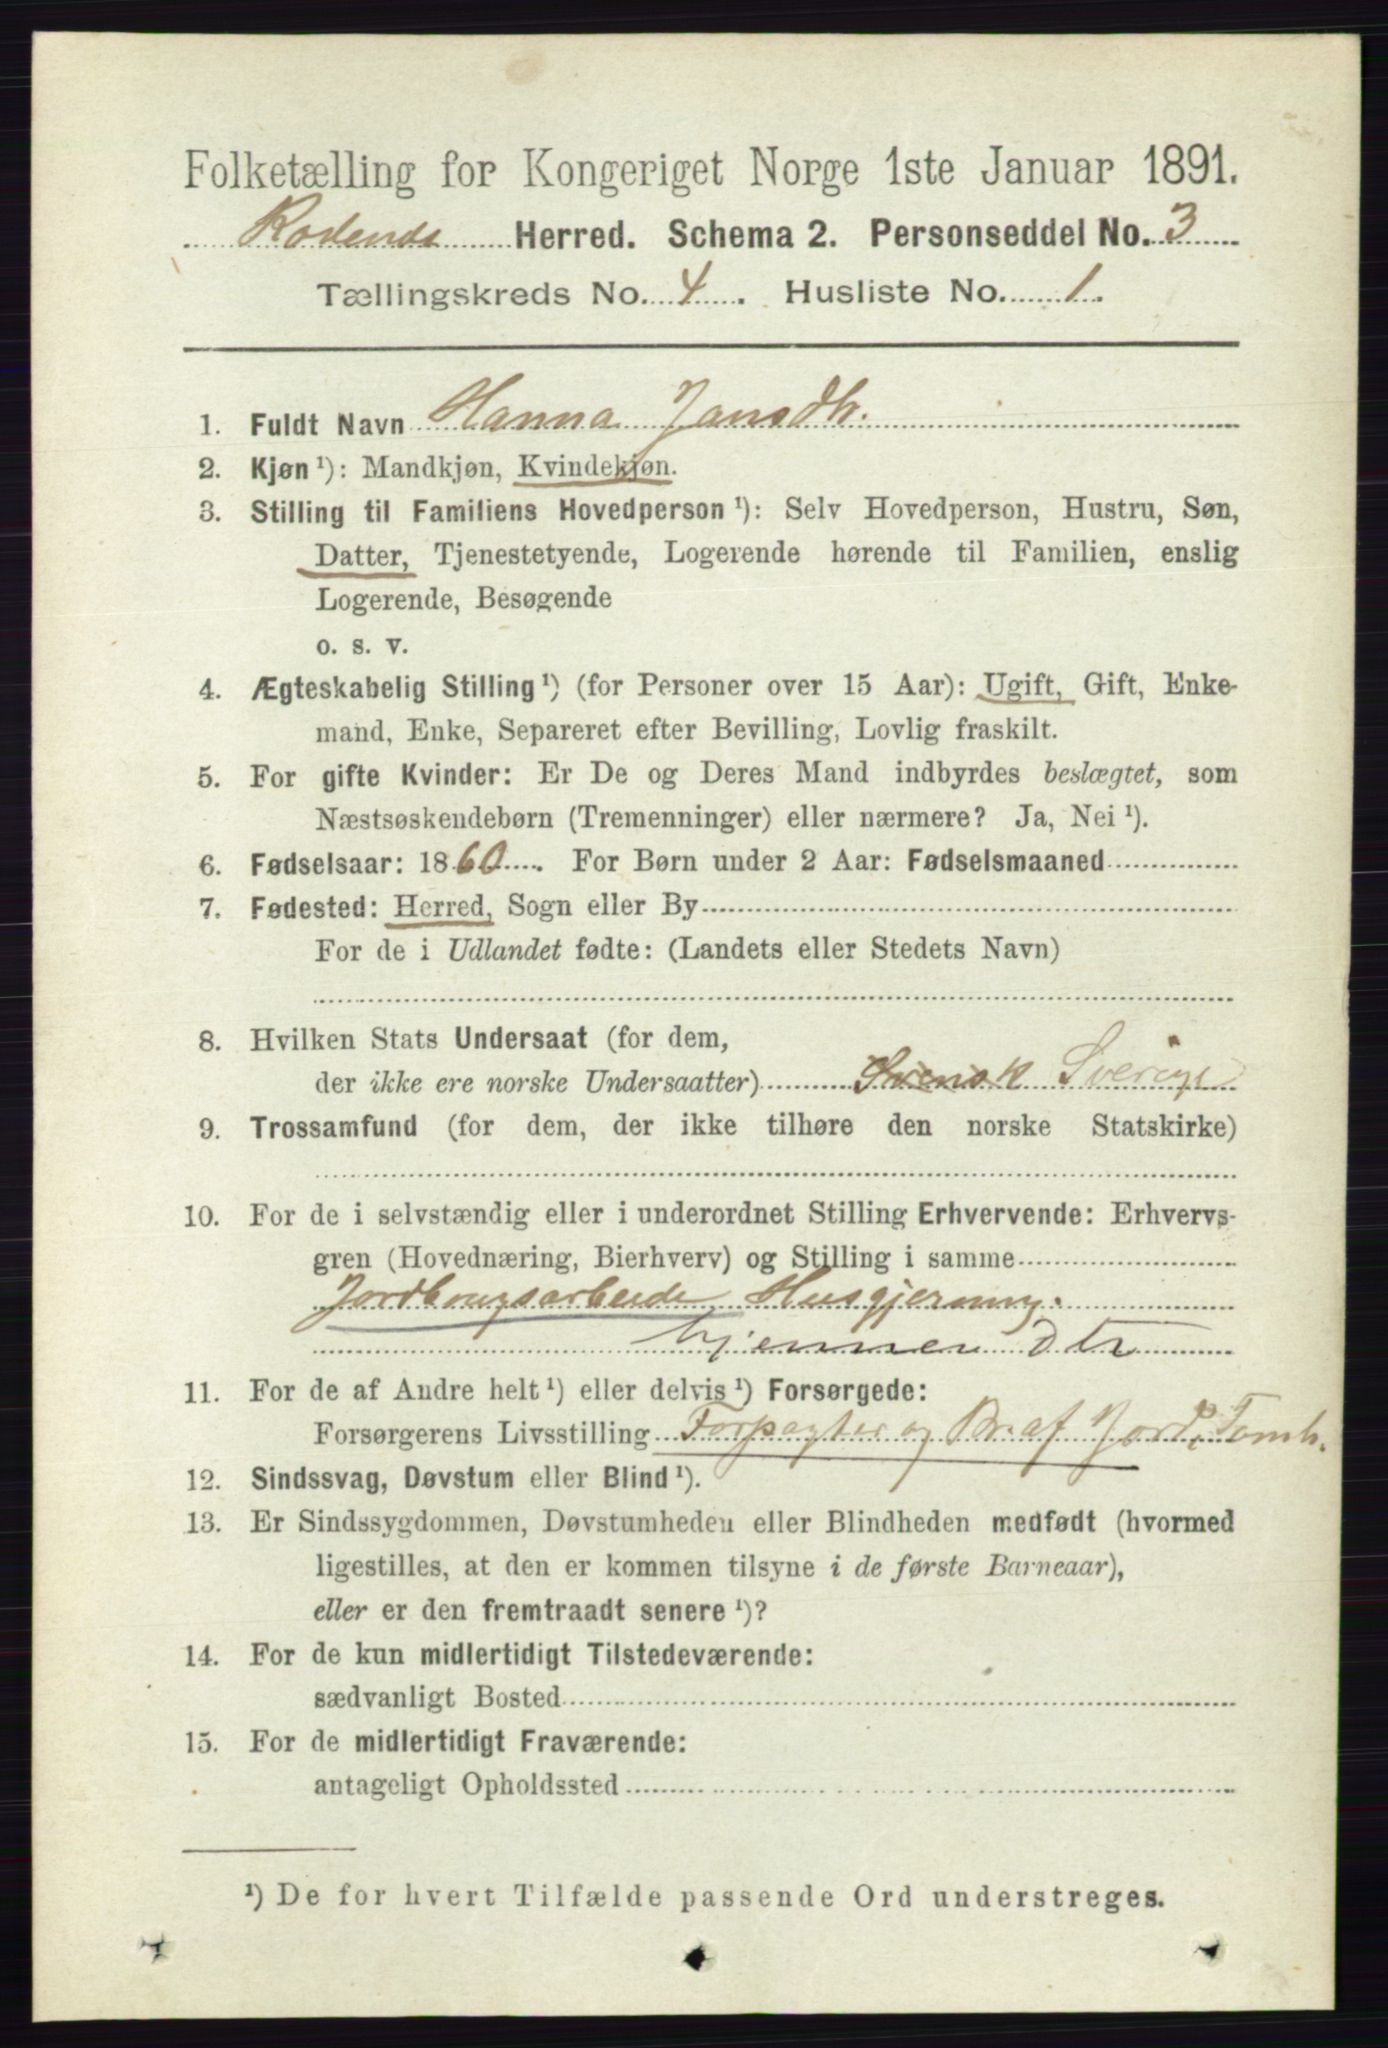 Folketælling for Kongeriget Norge 1ste Januar 1891.
Rødenes Herred. Schema 2. Personseddel No. 3
Tællingskreds No. 4. Husliste No. 1.
1. Fuldt Navn Hanna Jansdtr.
2. Kjøn ¹): Mandkjøn, Kvindekjøn.
3. Stilling til Familiens Hovedperson ¹): Selv Hovedperson, Hustru, Søn,
Datter, Tjenestetyende, Logerende hørende til Familien, enslig
Logerende, Besøgende
o. s. v.
4. Ægteskabelig Stilling ¹) (for Personer over 15 Aar): Ugift, Gift, Enke-
mand, Enke, Separeret efter Bevilling, Lovlig fraskilt.
5. For gifte Kvinder: Er De og Deres Mand indbyrdes beslægtet, som
Næstsøskendebørn (Tremenninger) eller nærmere? Ja, Nei ¹).
6. Fødselsaar: 1860. For Børn under 2 Aar: Fødselsmaaned
7. Fødested: Herred, Sogn eller By
For de i Udlandet fødte: (Landets eller Stedets Navn)
8. Hvilken Stats Undersaat (for dem,
der ikke ere norske Undersaatter) Svensk Sverige
9. Trossamfund (for dem, der ikke tilhøre den norske Statskirke)
10. For de i selvstændig eller i underordnet Stilling Erhvervende: Erhvervs-
gren (Hovednæring, Bierhverv) og Stilling i samme
Jordbrugsarbeide Husgjerning.
hjemmev dtr
11. For de af Andre helt ¹) eller delvis ¹) Forsørgede:
Forsørgerens Livsstilling Forpagter og Br. af Jord, Tomb.
12. Sindssvag, Døvstum eller Blind ¹).
13. Er Sindssygdommen, Døvstumheden eller Blindheden medfødt (hvormed
ligestilles, at den er kommen tilsyne i de første Barneaar),
eller er den fremtraadt senere ¹)?
14. For de kun midlertidigt Tilstedeværende:
sædvanligt Bosted
15. For de midlertidigt Fraværende:
antageligt Opholdssted
¹) De for hvert Tilfælde passende Ord understreges.